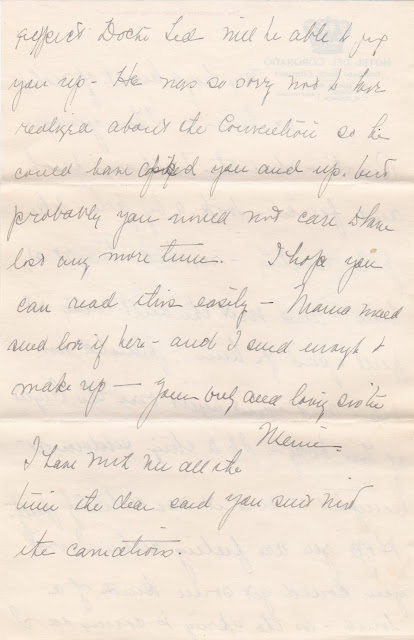 expect Docto Ted will be able to fix
you up - He was so sorry not to have
realized about the Convention so he
could have fixed you and up. but
probably you would not care to have
lost any more time. - I hope you
can read this easily - Mama would
send love if here - and I send enough to
make up - Your only and loving sister
Memie -
I have with me all the
time the dear said you sent
the carnations.